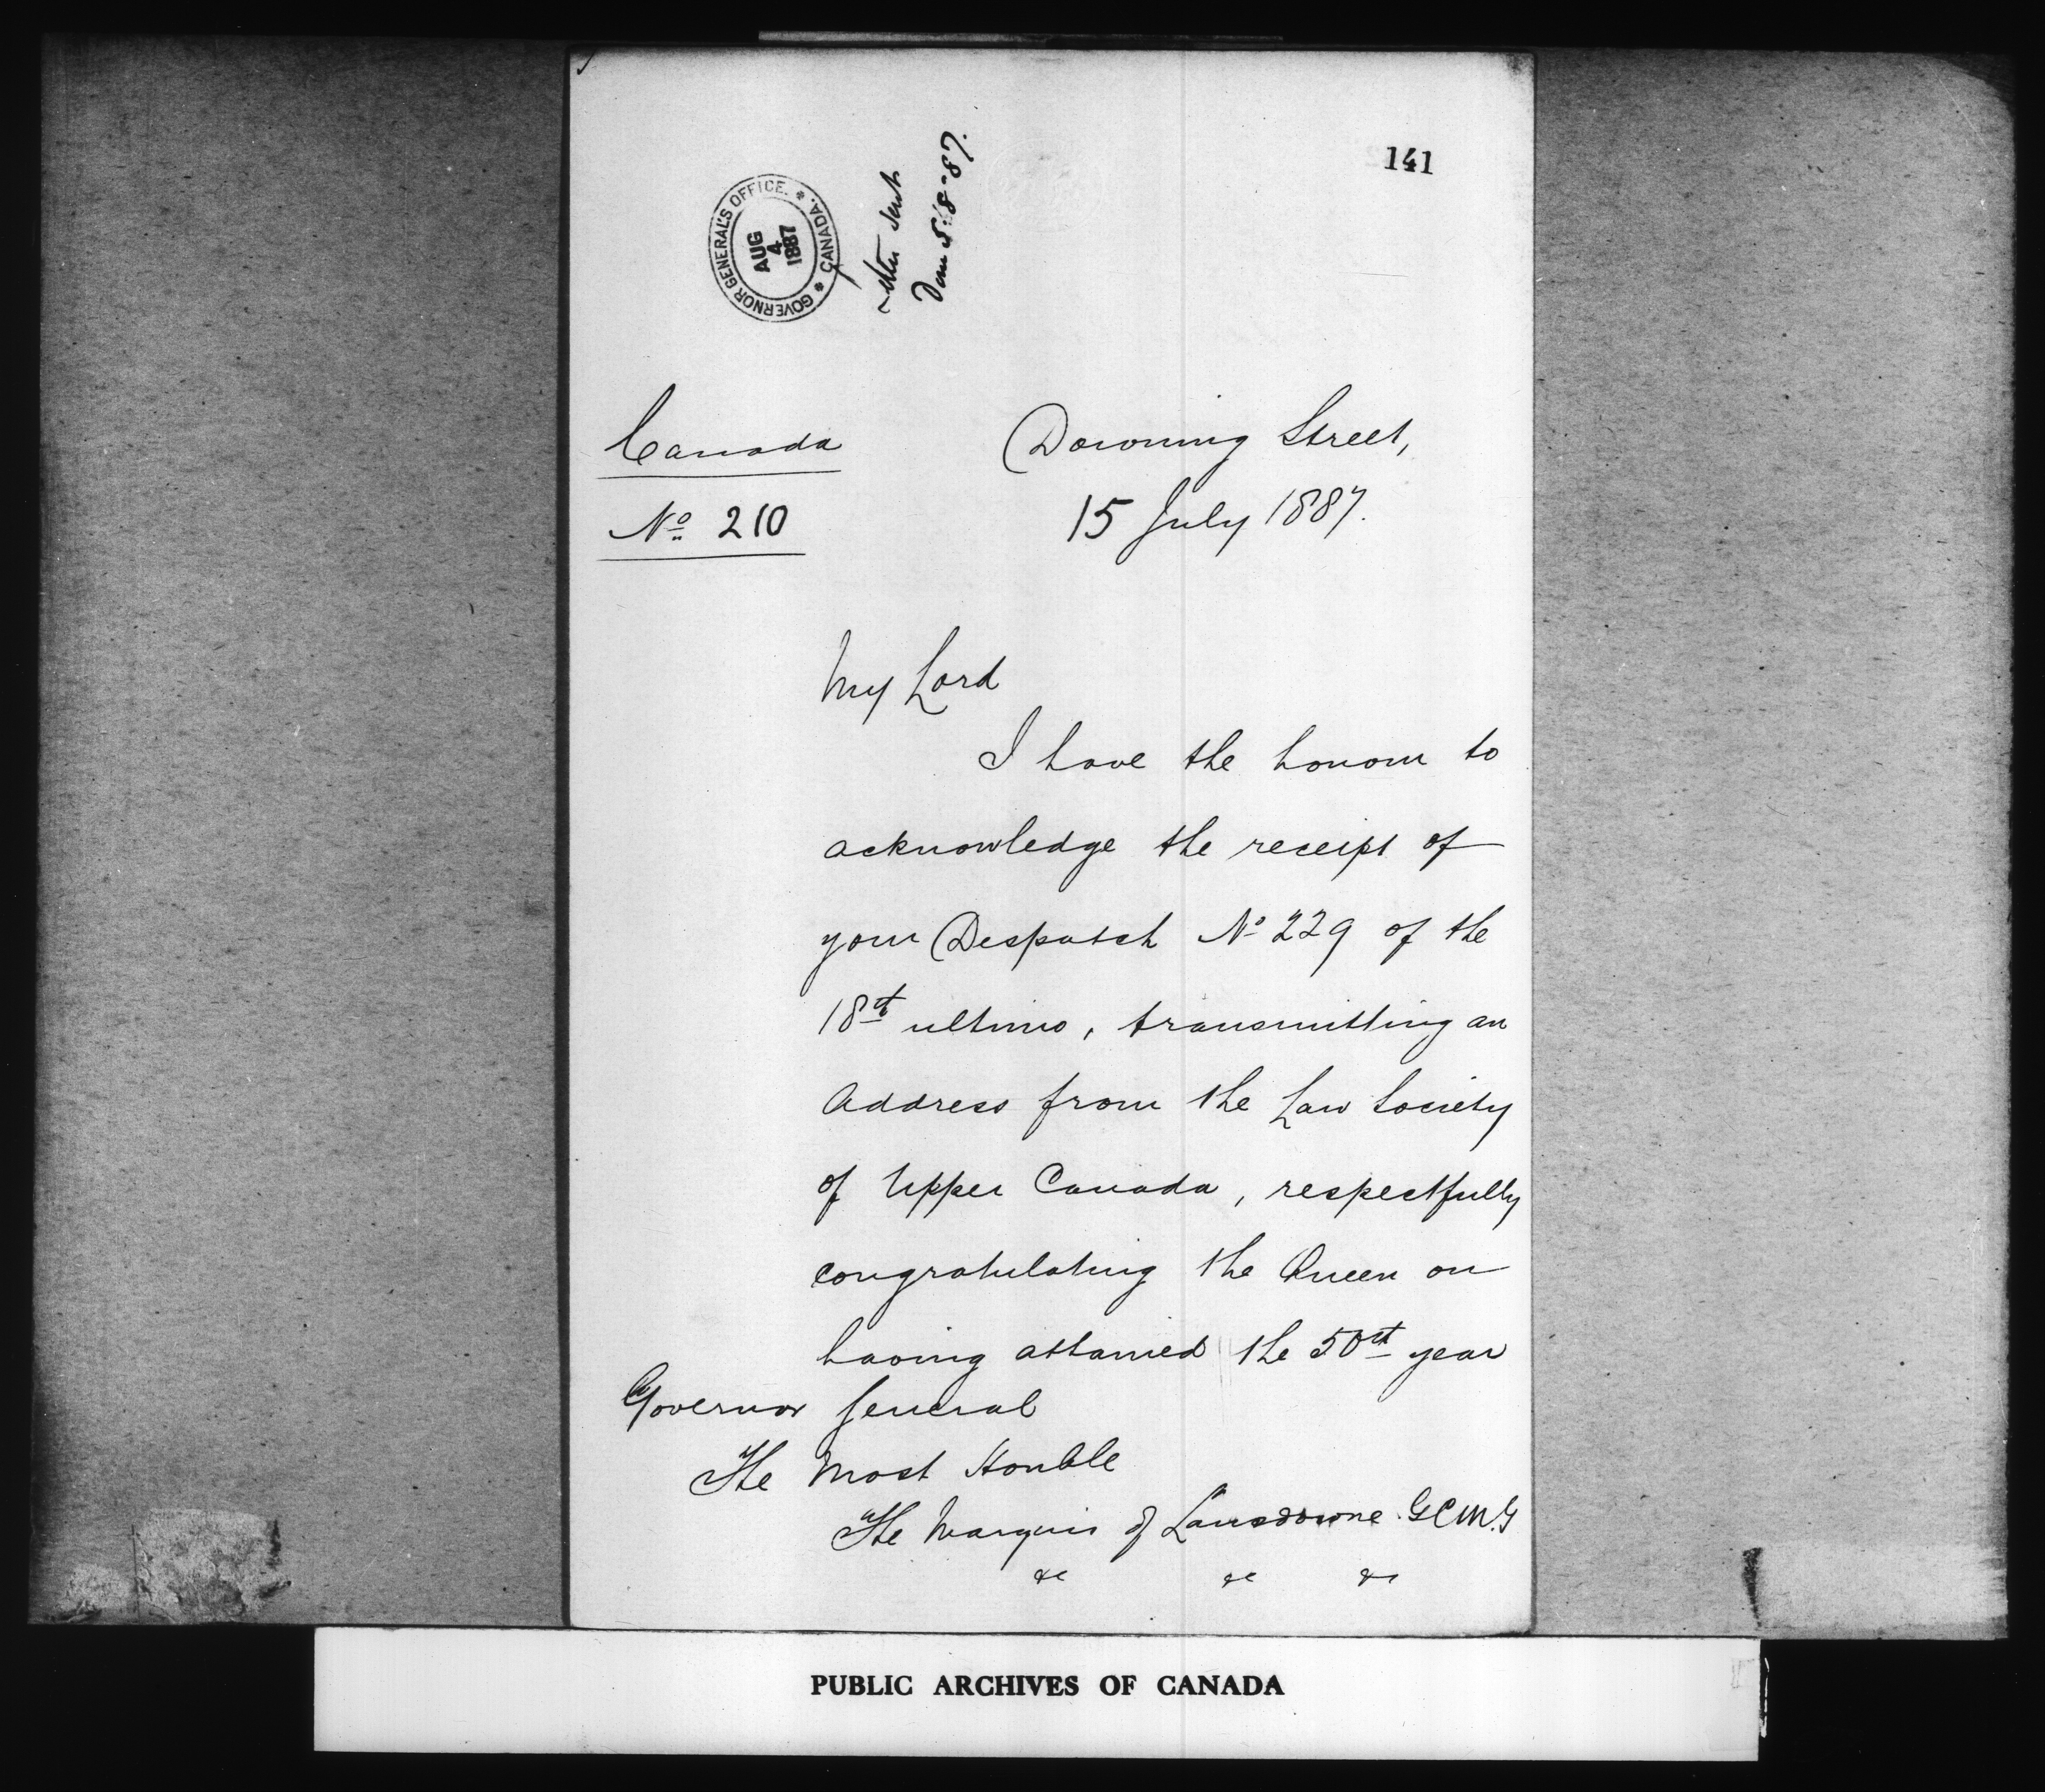 141
GOVERNOR GENERAL'S OFFICE. * CANADA. *
AUG
4
1887
sent
5-8-87.
Canada
Downing Street,
No 210
15 July 1887.
My Lord
I have the honour to
acknowledge the receipt of
your Despatch No 229 of the
18th ultimo, transmitting an
Address from the Law Society
of Upper Canada, respectfully
congratulating the Queen on
having attained the 50th year
Governor General
The Most Honble
The Marquis of Lansdowne G.C.M.G
&c &c &c
PUBLIC ARCHIVES OF CANADA